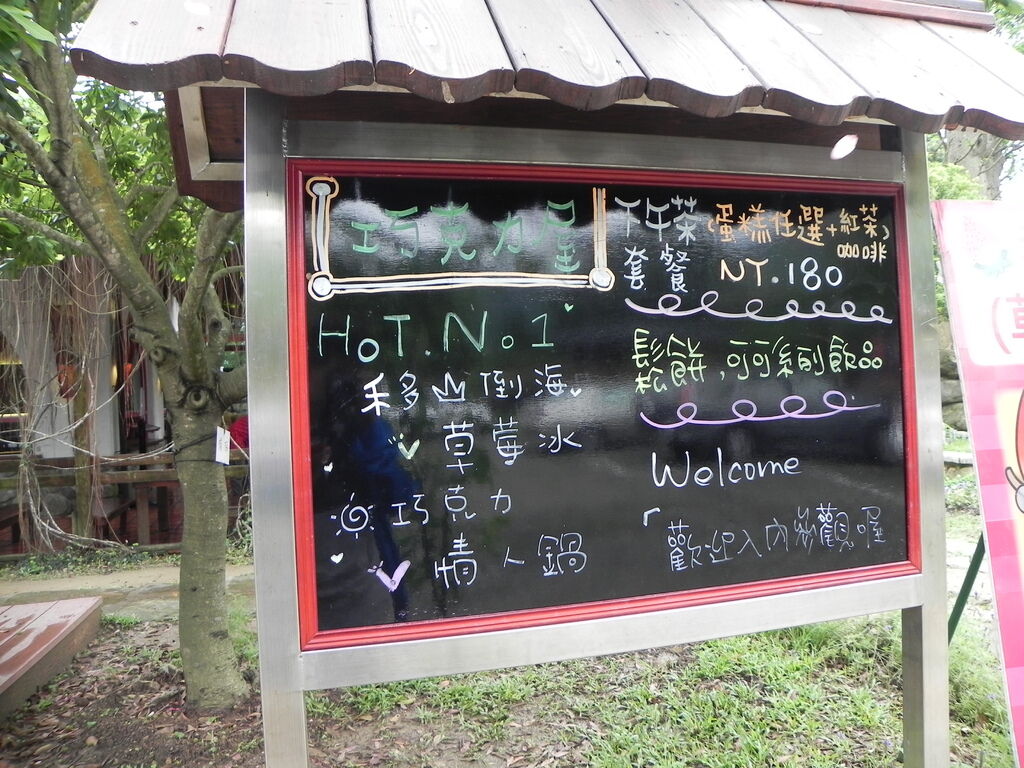 巧克力屋
HOT.No1
移山倒海
草莓冰
巧克力
情人鍋
下午茶(蛋糕任選+紅茶)
咖啡
套餐 NT.180
鬆餅,可可系列飲品
Welcome
歡迎入內參觀喔